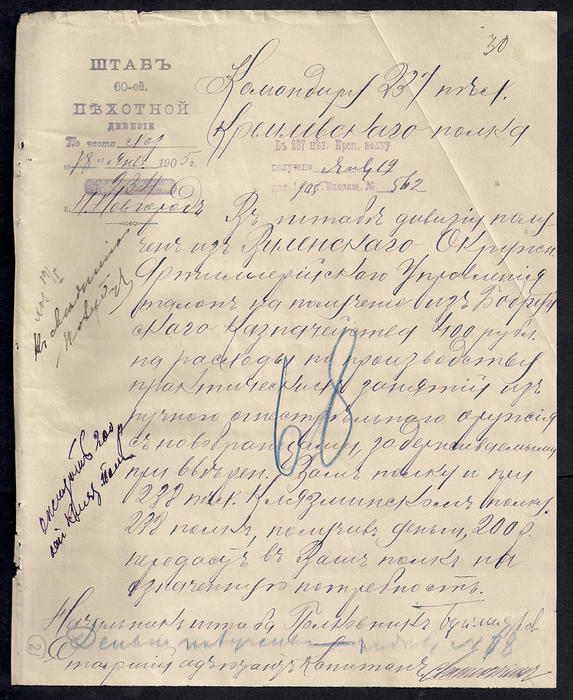 30
ШТАБЪ
60-ой
ПѢХОТНОЙ
ДИВИЗІИ
По части хоз
"18" Янв 1905 г.
934
г. Н Новгородъ
Командиру 237 пѣх.
Кремлевскаго полка
Въ 237 пѣх. Крем. полку
получено Янв 19
дня 1905 г. Входящ. № 562
Въ штабъ дивизіи полу
ченъ изъ Виленскаго Окружн.
Артиллерійскаго Управленія
талонъ на полученіе изъ Бобруй
скаго Казначейства 400 рубл.
на расходы по производству
практическихъ занятій изъ
ручного огнестрѣльнаго оружія
съ новобранцами, задерживаемыми
при ввѣрен. Вамъ полку и при
238 пѣх. Клязминскомъ полку.
238 полкъ, получивъ деньги, 200 р.
передастъ въ Вашъ полкъ на
означенную потребность.
68
Начальникъ штаба Полковникъ
Деньги получены
Старшій адъютантъ Капитанъ
2